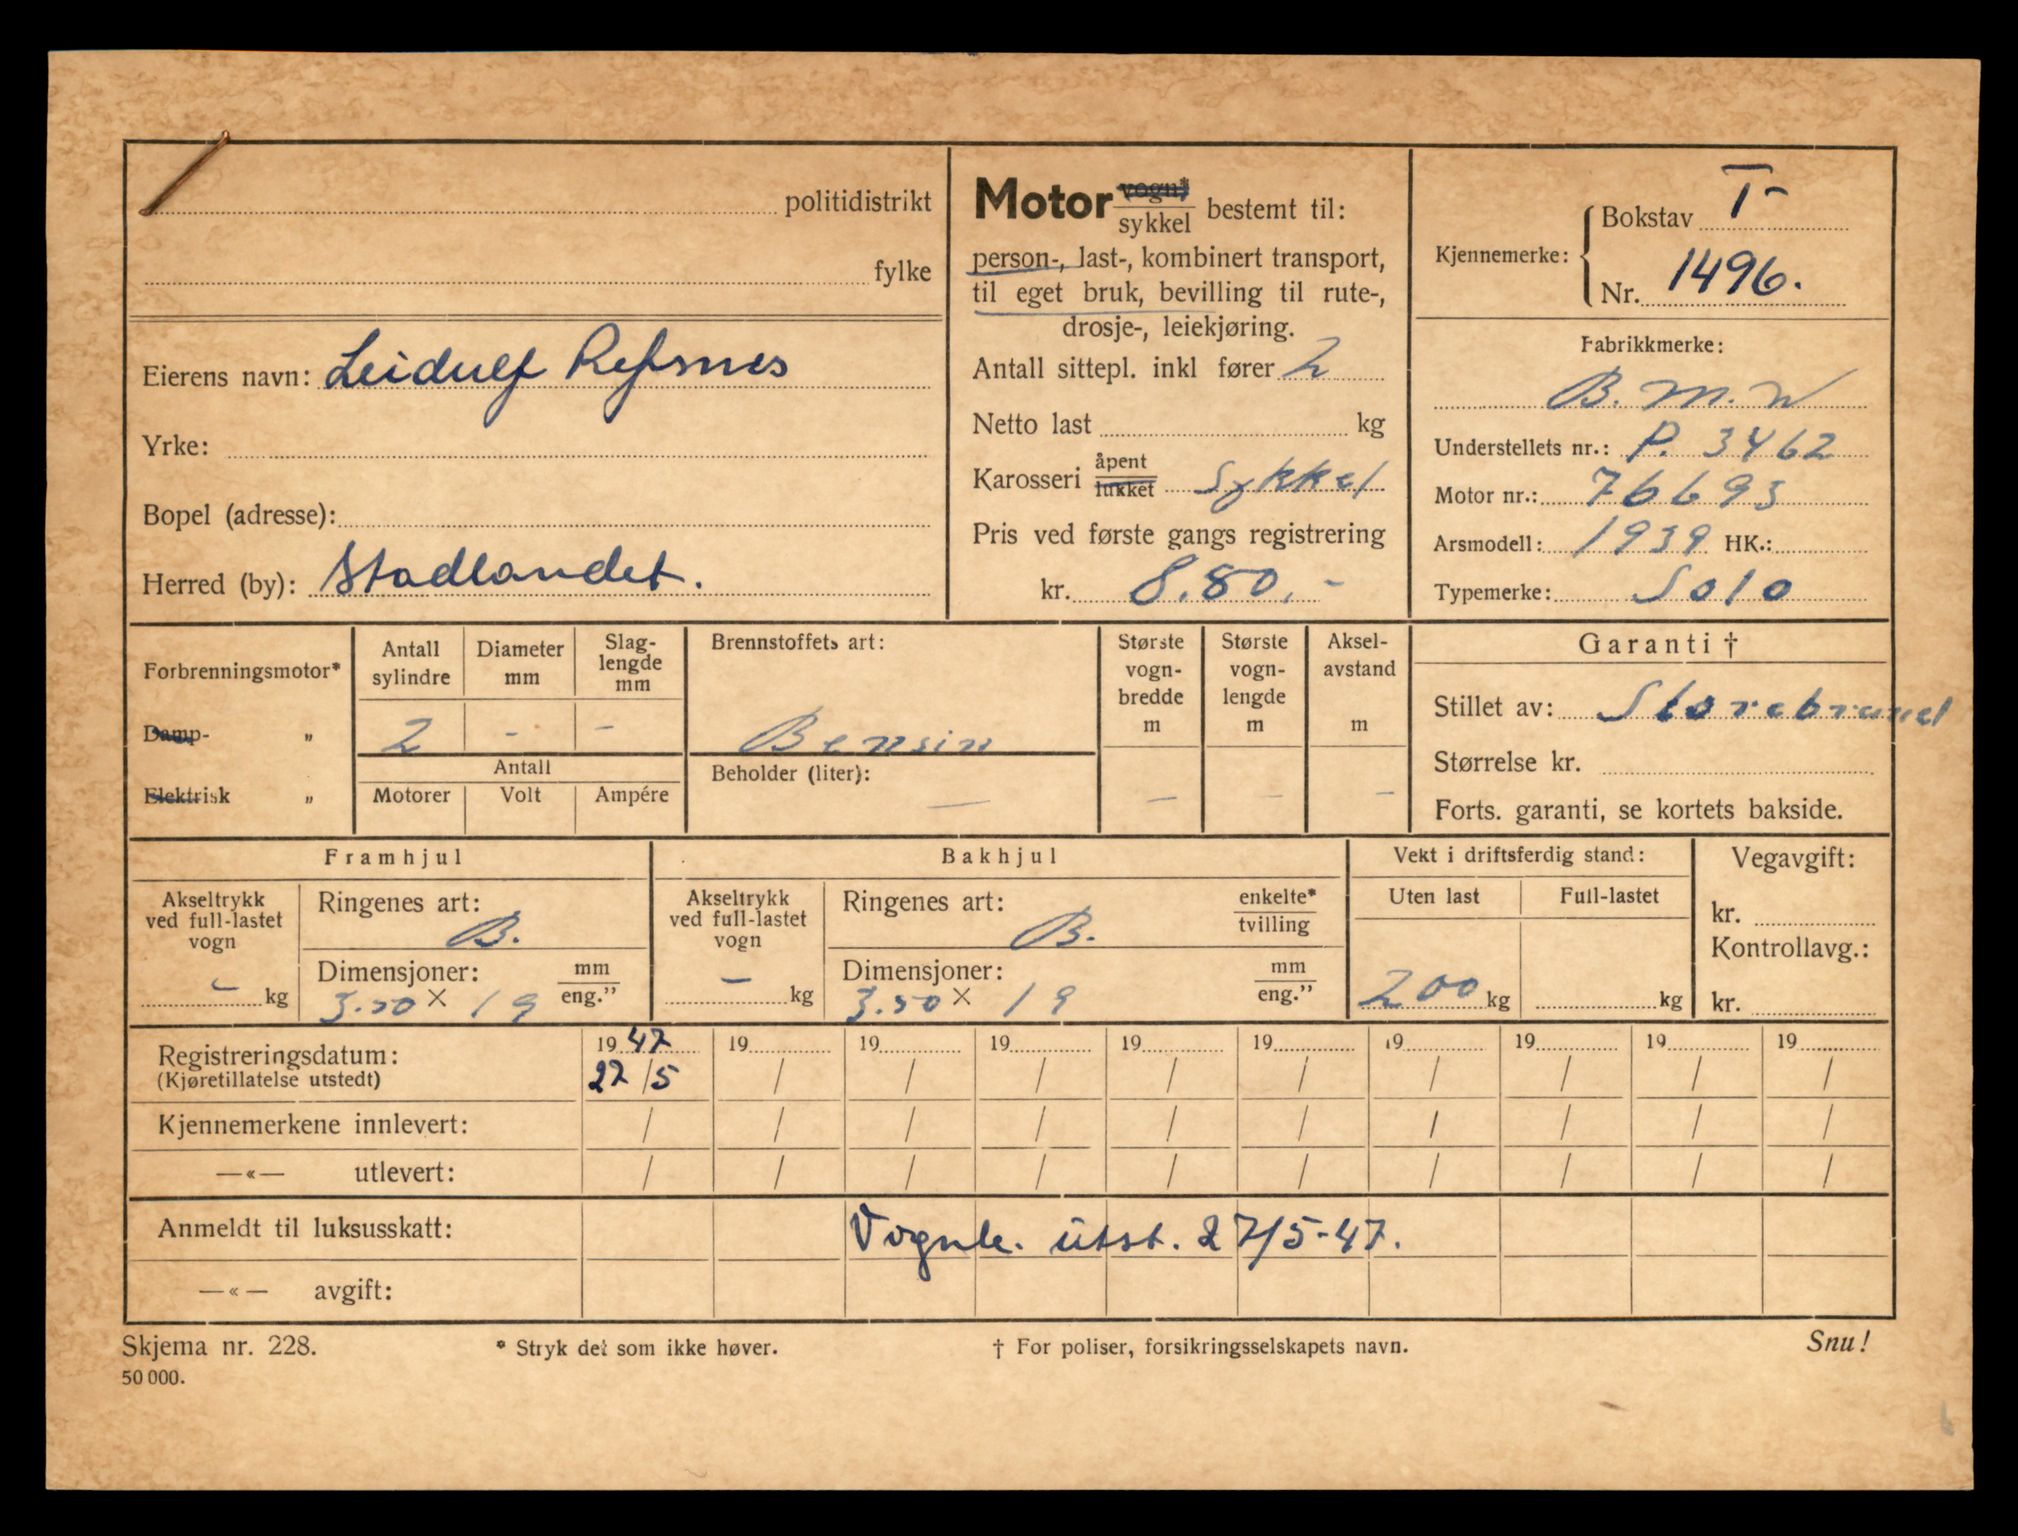 politidistrikt
fylke
Eierens navn: Leidulf Refsnes
Yrke:
Bopel (adresse):
Herred (by): Stadlandet.
Motor vogn* / sykkel bestemt til:
person-, last-, kombinert transport,
til eget bruk, bevilling til rute-,
drosje-, leiekjøring.
Antall sittepl. inkl fører 2
Netto last kg
Karosseri åpent / lukket Sykkel
Pris ved første gangs registrering
kr. 8.80.-
Kjennemerke: Bokstav T-
Nr. 1496.
Fabrikkmerke:
B.M.W
Understellets nr.: P. 3462
Motor nr.: 76693
Arsmodell: 1939 HK.:
Typemerke: Solo
Forbrenningsmotor*
Damp- „
Elektrisk „
Antall sylindre
Diameter mm
Slag-lengde mm
2 - -
Antall
Motorer Volt Ampére
Brennstoffets art:
Bensin
Beholder (liter): —
Største vogn-bredde m
Største vogn-lengde m
Aksel-avstand m
— — —
Garanti †
Stillet av: Storebrand
Størrelse kr.
Forts. garanti, se kortets bakside.
Framhjul
Akseltrykk ved full-lastet vogn
- kg
Ringenes art:
B.
Dimensjoner: mm / eng.”
3.50 × 19
Bakhjul
Akseltrykk ved full-lastet vogn
- kg
Ringenes art: enkelte* / tvilling
B.
Dimensjoner: mm / eng.”
3.50 × 19
Vekt i driftsferdig stand:
Uten last Full-lastet
200 kg kg
Vegavgift:
kr.
Kontrollavg.:
kr.
Registreringsdatum: 1947 19 19 19 19 19 19 19 19 19
(Kjøretillatelse utstedt) 27/5 / / / / / / / / /
Kjennemerkene innlevert: / / / / / / / / / /
—«— utlevert: / / / / / / / / / /
Anmeldt til luksusskatt: Vognk. utst. 27/5-47.
—«— avgift:
Skjema nr. 228. * Stryk det som ikke høver. † For poliser, forsikringsselskapets navn. Snu!
50 000.